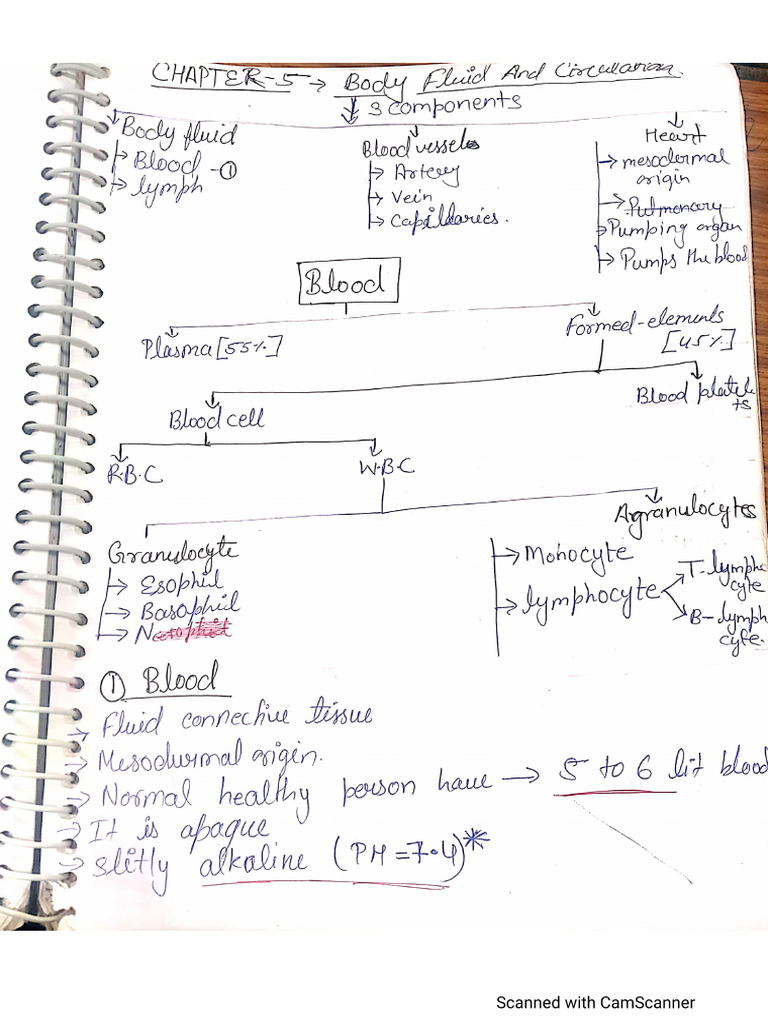 CHAPTER-5 → Body Fluid And Circulation.
3 components
Body fluid
→ Blood -①
→ lymph
Blood vessels
→ Artery
→ Vein
→ Capillaries.
Heart
→ mesodermal
origin
→ Pulmonary
→ Pumping organ
→ Pumps the blood
Blood
Plasma [55%]
Formed-elements
[45%]
Blood cell
Blood platele
ts
R.B.C
W.B.C
Granulocyte
→ Esophil
→ Basophil
→ N
Agranulocytes
→ Monocyte
→ lymphocyte
T-lympho
cyte
B-lymph
cyte.
① Blood
→ Fluid connective tissue
→ Mesodermal origin.
→ Normal healthy person have → 5 to 6 lit blood
→ It is apaque
→ slitly alkaline (PH=7.4)*
Scanned with CamScanner